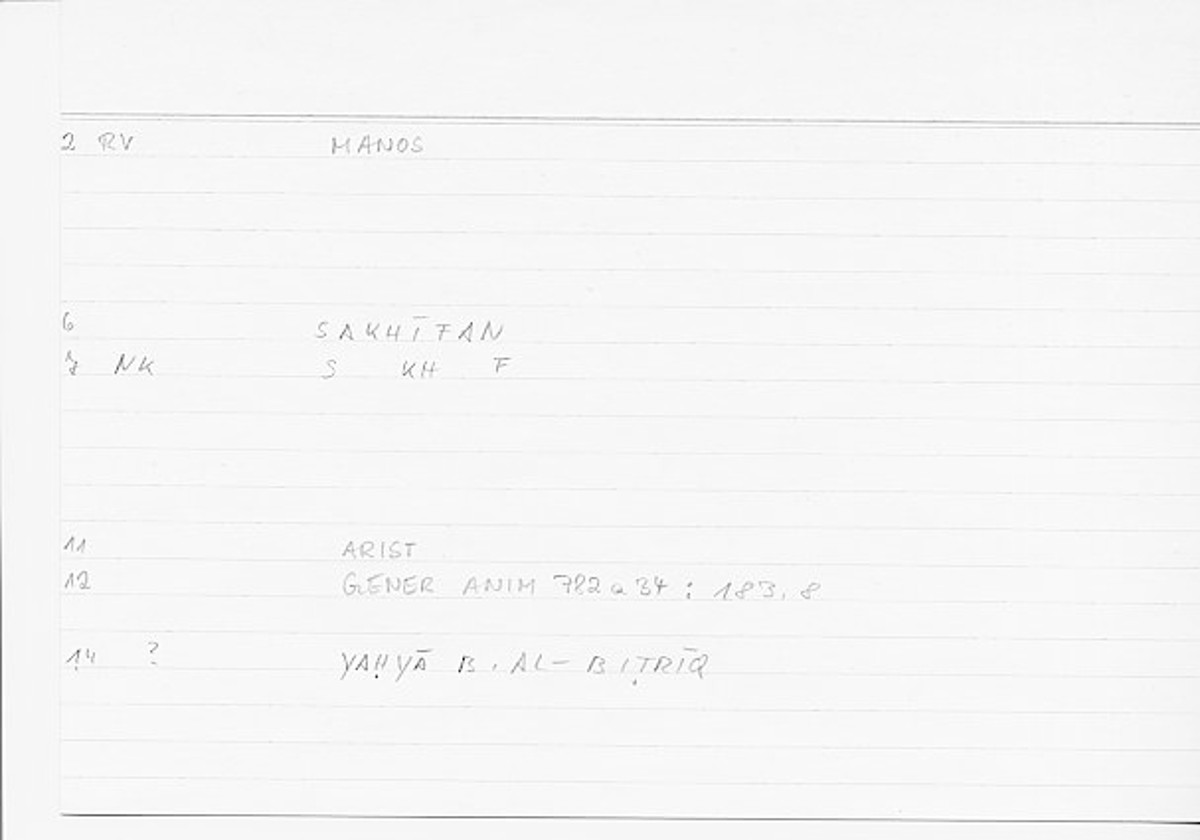 2 RV MANOS
6 SAKHĪFAN
7 NK S KH F
11 ARIST
12 GENER ANIM 782 a 34 : 183, 8
14 ? YAḤYĀ B. AL-BIṬRĪQ